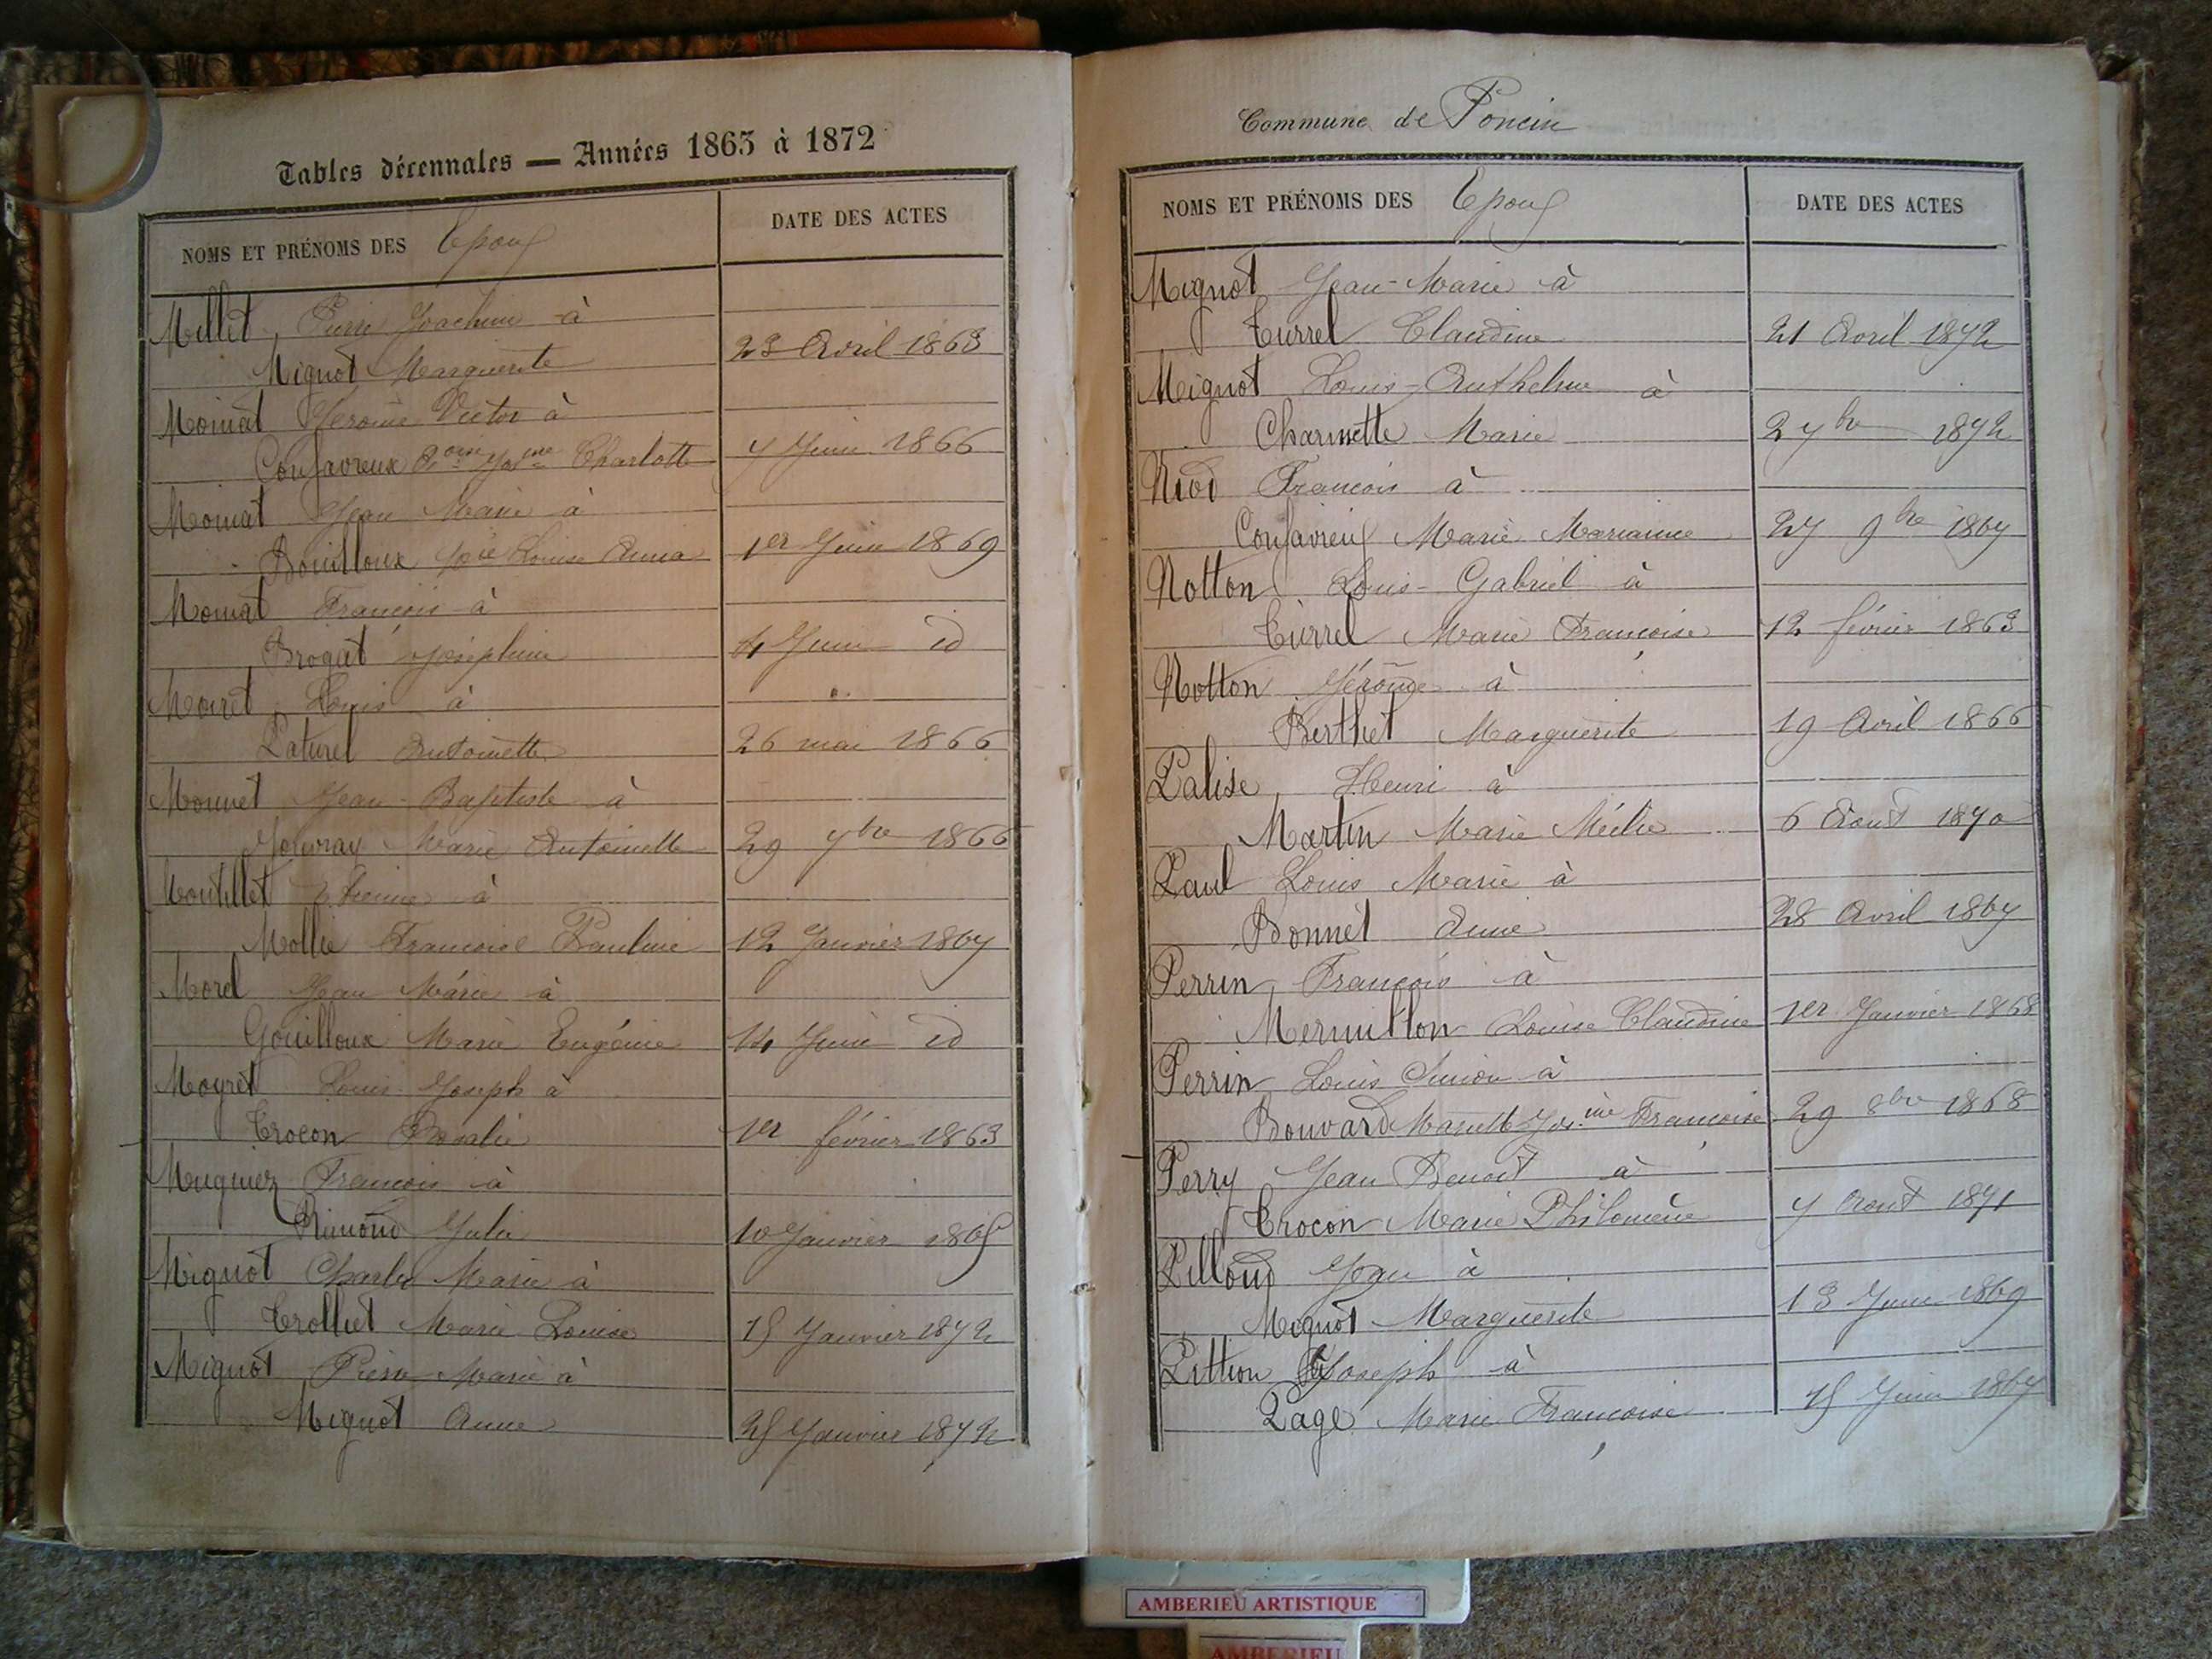 Tables décennales — Années 1863 à 1872
NOMS ET PRÉNOMS DES Epoux DATE DES ACTES
Millet Pierre Joachim à
Mignot Marguerite 23 Avril 1863
Moinat Jérome Victor à
Confavreux Charlotte 7 Juin 1866
Moinat Jean Marie à
Bouilloux Louise Anna 1er Juin 1869
Moinat François à
Brogat Joséphine 14 Juin id
Moiret Louis à
Paturel Antoinette 26 mai 1866
Monnet Jean-Baptiste à
Marie Antoinette 29 7bre 1866
Montillet Etienne à
Mollie Françoise Pauline 12 Janvier 1867
Morel Jean Marie à
Gouilloux Marie Eugénie 14 Juin id
Moyret Louis Joseph à
Trocon Rosalie 1er février 1863
Mugnier François à
Rimond Julie 10 Janvier 1865
Mignot Charles Marie à
Trolliet Marie Louise 15 Janvier 1872
Mignot Pierre Marie à
Mignot Anne 25 Janvier 1872
Commune de Poncin
NOMS ET PRÉNOMS DES Epoux DATE DES ACTES
Mignot Jean-Marie à
Turrel Claudine 21 Avril 1872
Mignot Louis-Anthelme à
Charmette Marie 2 7bre 1872
Niod François à
Confavreux Marie Marianne 27 9bre 1867
Notton Louis-Gabriel à
Turrel Marie Françoise 12 février 1863
Notton Jérôme à
Berthet Marguerite 19 Avril 1866
Palise Henri à
Martin Marie Mélie 6 Aout 1870
Paul Louis Marie à
Bonnet Anne 28 Avril 1867
Perrin François à
Mermillon Louise Claudine 1er Janvier 1868
Perrin Louis Simon à
Bouvard Françoise 29 8bre 1868
Perry Jean Benoit à
Trocon Marie Philomène 7 Aout 1871
Pilloud Jean à
Mignot Marguerite 13 Juin 1869
Pittion Joseph à
Page Marie Françoise 15 Juin 1867
AMBERIEU ARTISTIQUE
AMBERIEU